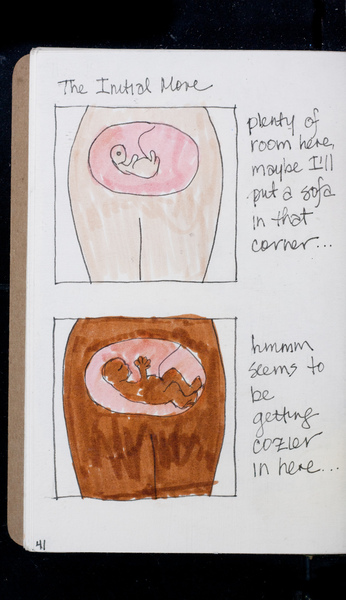 The Initial Move
plenty of
room here,
maybe I'll
put a sofa
in that
corner...
hmmm
seems to
be
getting
cozier
in here...
41